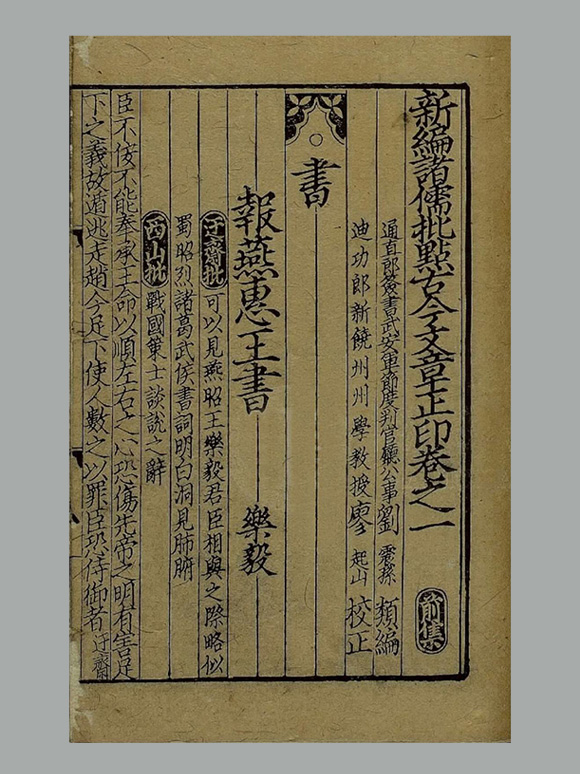 新編諸儒批點古今文章正印卷之一 前集
通直郎簽書武安軍節度判官廳公事劉震孫類編
迪功郎新饒州州學教授廖起山校正
書
報燕惠王書 樂毅
迂齋批 可以見燕昭王樂毅君臣相與之際略似
蜀昭烈諸葛武侯書詞明白洞見肺腑
西山批 戰國策士談說之辭
臣不佞不能奉承王命以順左右之心恐傷先帝之明有害足
下之義故遁逃走趙今足下使人數之以罪臣恐侍御者迂齋